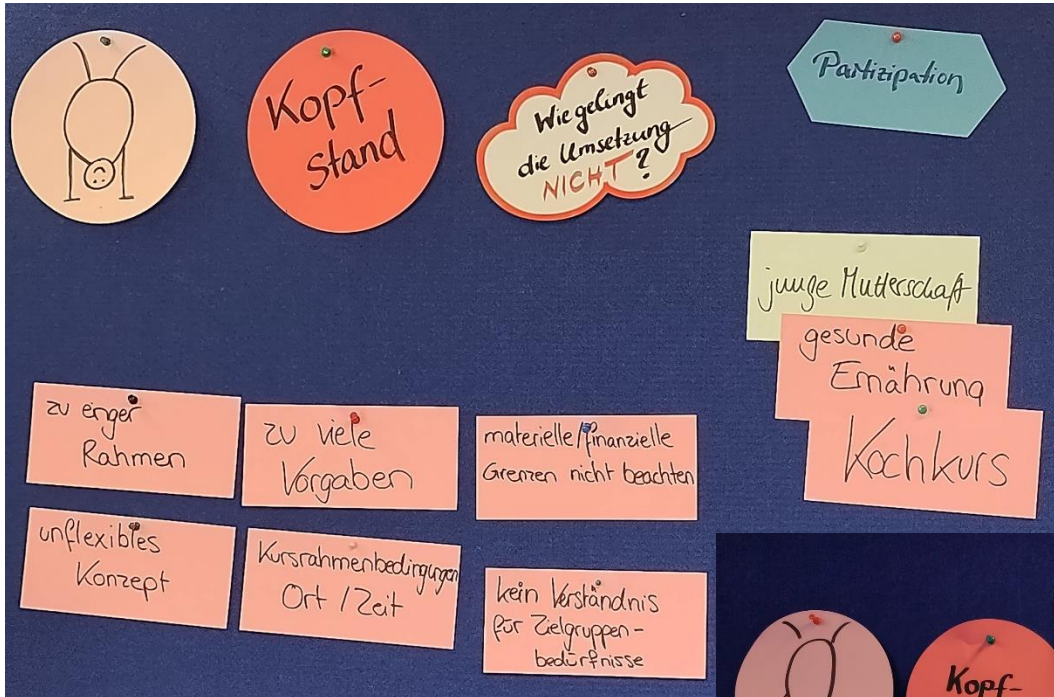 Kopf-
stand
Wie gelingt
die Umsetzung
NICHT?
Partizipation
junge Mutterschaft
gesunde
Ernährung
Kochkurs
zu enger
Rahmen
zu viele
Vorgaben
materielle/finanzielle
Grenzen nicht beachten
unflexibles
Konzept
Kursrahmenbedingungen
Ort / Zeit
kein Verständnis
für Zielgruppen-
bedürfnisse
Kopf-